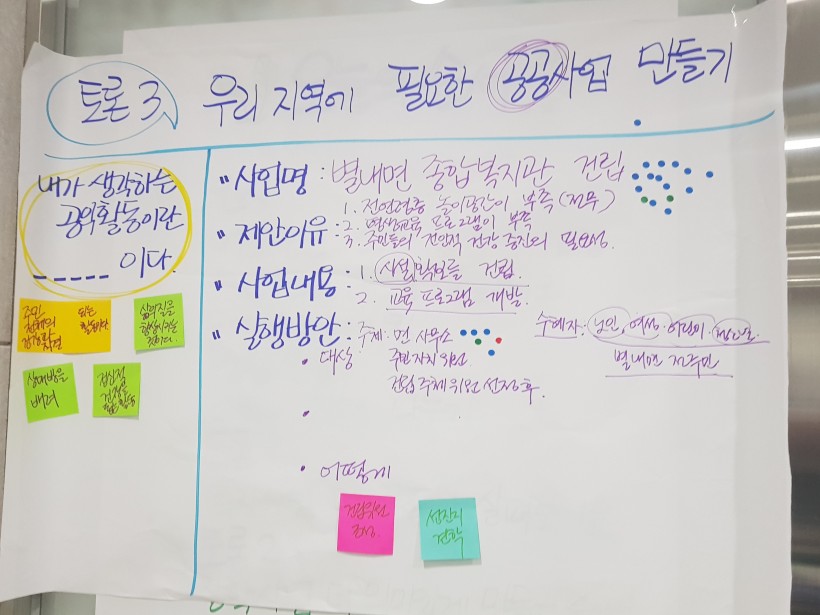 토론 3
우리 지역에 필요한 공공사업 만들기
내가 생각하는
공익활동이란
_ _ _ _ _ 이다.
주민
전체의
되는
삶의질을
향상시키는
것이다.
상대방을
배려
" 사업명 : 별내면 종합복지관 건립
" 제안이유 : 1. 전연령층 놀이공간이 부족 (전무)
2. 평생교육 프로그램이 부족
3. 주민들의 전인적 건강 증진의 필요성.
" 사업내용 : 1. 시설확보를 건립.
2. 교육 프로그램 개발.
" 실행방안 : 주체: 면 사무소
수혜자: 노인, 여성, 어린이
별내면 전주민
• 대상 주민자치위원
건립 주체 위원 선정 후.
• 어떻게
건립위원
조성
선진지
견학